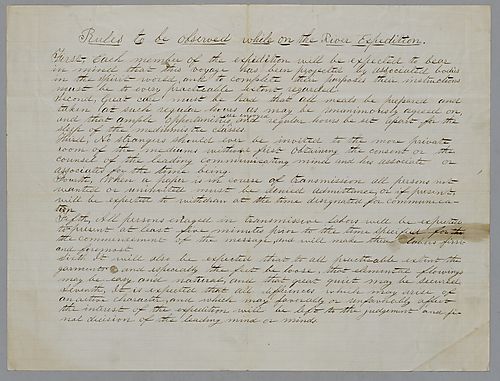 Rules to be observed while on the River Expedition.
First, Each member of the expedition will be expected to bear
in mind that this voyage has been projected by associated bodies
in the spirit world, and to complete their purposes their instructions
must be to every practicable extent regarded.
Second, Great care must be had that all meals be prepared and
taken at such regular hours as may be unanimously agreed on,
and that ample opportunities, and regular hours be set apart for the
sleep of the mediumistic classes.
Third, No strangers should ever be invited to the more private
room of the mediums without first obtaining the consent or the
counsel of the leading communicating mind and his associate or
associates for the time being.
Fourth, When a paper is in course of transmission all persons not
wanted or uninvited must be denied admittance, or if present
will be expected to withdraw at the time designated for communica-
tion.
Fifth, All persons engaged in transmissive labors will be expected
to present at least five minutes prior to the time specified for the
the commencement of the message, and will made their claims first
and foremost.
Sixth. It will also be expected that to all practicable extent the
garments and especially the feet be loose, that elementive flowings
may be easy and natural, and that great quiet may be secured.
Seventh, It is expected that all differences which may arise of
an active character, and which may favorably or unfavorably affect
the interest of the expedition will be left to the judgement and fi-
nal decision of the leading mind or minds.